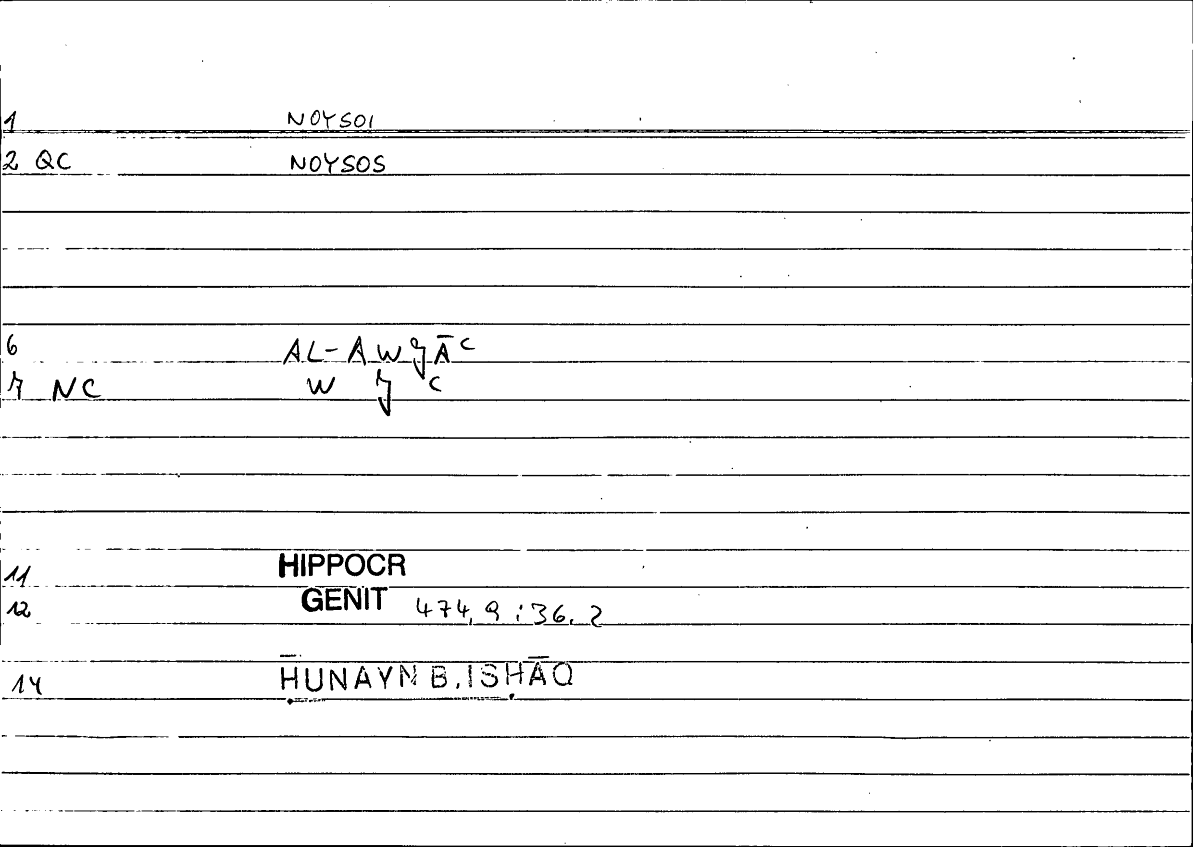 1 NOYSOI
2 QC NOYSOS
6 AL-AWǧĀᶜ
7 NC W ǧ ᶜ
11 HIPPOCR
12 GENIT 474,9 : 36.2
14 ḤUNAYN B. ISḤĀQ